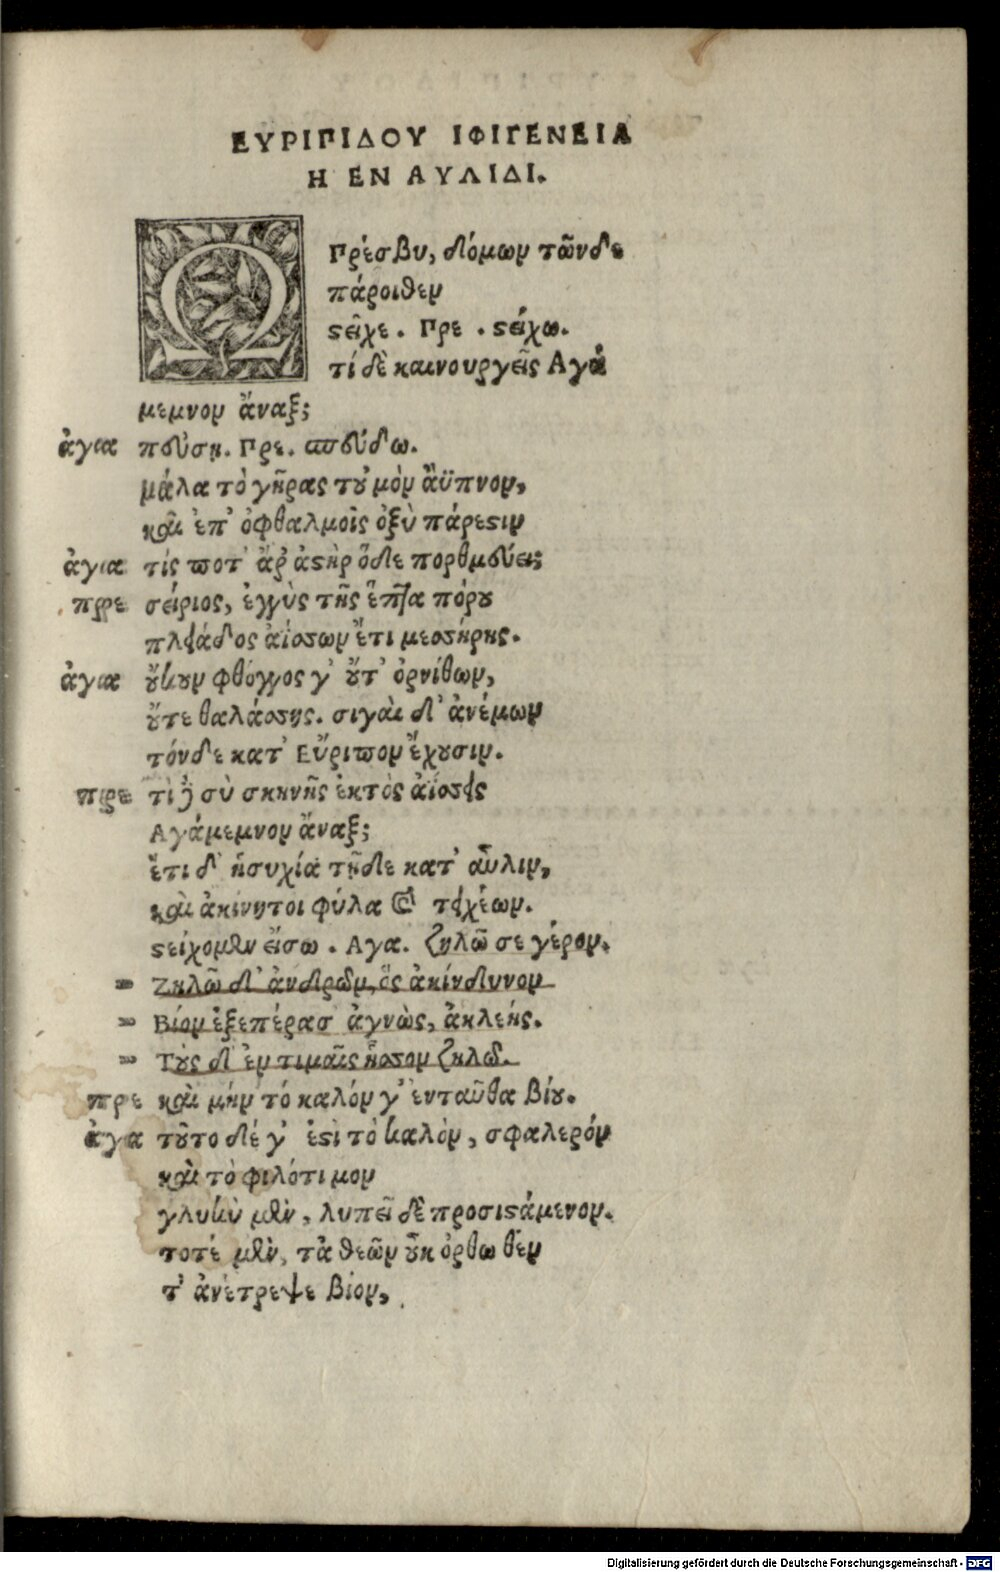 ΕΥΡΙΠΙΔΟΥ ΙΦΙΓΕΝΕΙΑ
Η ΕΝ ΑΥΛΙΔΙ.
Ω Πρέσβυ, δόμων τῶνδε
πάροιθεν
ϛεῖχε. Πρε. ϛείχω.
τί δὲ καινουργεῖς Αγά
μεμνον ἄναξ;
ἀγα πσύση. Πρε. σπσύδω.
μάλα τὸ γῆρας τοὐμὸν ἄϋπνον,
καὶ ἐπ' ὀφθαλμοῖς ὀξὺ πάρεϛιν
ἀγα τίς ποτ' ἂρ ἀϛὴρ ὅδε πορθμεύει;
πρε σείριος, ἐγγὺς τῆς ἑπτα πόρου
πλειάδος ἀΐσσων ἔτι μεσσήρης.
ἀγα οὔκουν φθόγγος γ' οὔτ' ὀρνίθων,
οὔτε θαλάσσης. σιγαὶ δ' ἀνέμων
τόνδε κατ' Εὔριπον ἔχουσιν.
πρε τὶ δὲ σὺ σκηνῆς ἐκτὸς ἀΐσσεις
Αγάμεμνον ἄναξ;
ἔτι δ' ἡσυχία τῇδε κατ' αὖλιν,
καὶ ἀκίνητοι φύλακαὶ τειχέων.
ϛείχομεν εἴσω. Αγα. ζηλῶ σε γέρον.
" Ζηλῶ δ' ἀνδρῶν, ὃς ἀκίνδυνον
" Βίον ἐξεπέρασ' ἀγνὼς, ἀκλεής.
" Τοὺς δ' ἐν τιμαῖς ἧσσον ζηλῶ.
πρε καὶ μὴν τό καλόν γ' ἐνταῦθα βίου.
ἀγα τοῦτο δέ γ' ἐϛὶ τὸ καλὸν, σφαλερόν
καὶ τὸ φιλότιμον
γλυκὺ μὲν, λυπεῖ δὲ προσιϛάμενον.
τοτέ μὲν, τὰ θεῶν οὐκ ὀρθωθέν
τ' ἀνέτρεψε βίον,
Digitalisierung gefördert durch die Deutsche Forschungsgemeinschaft - DFG